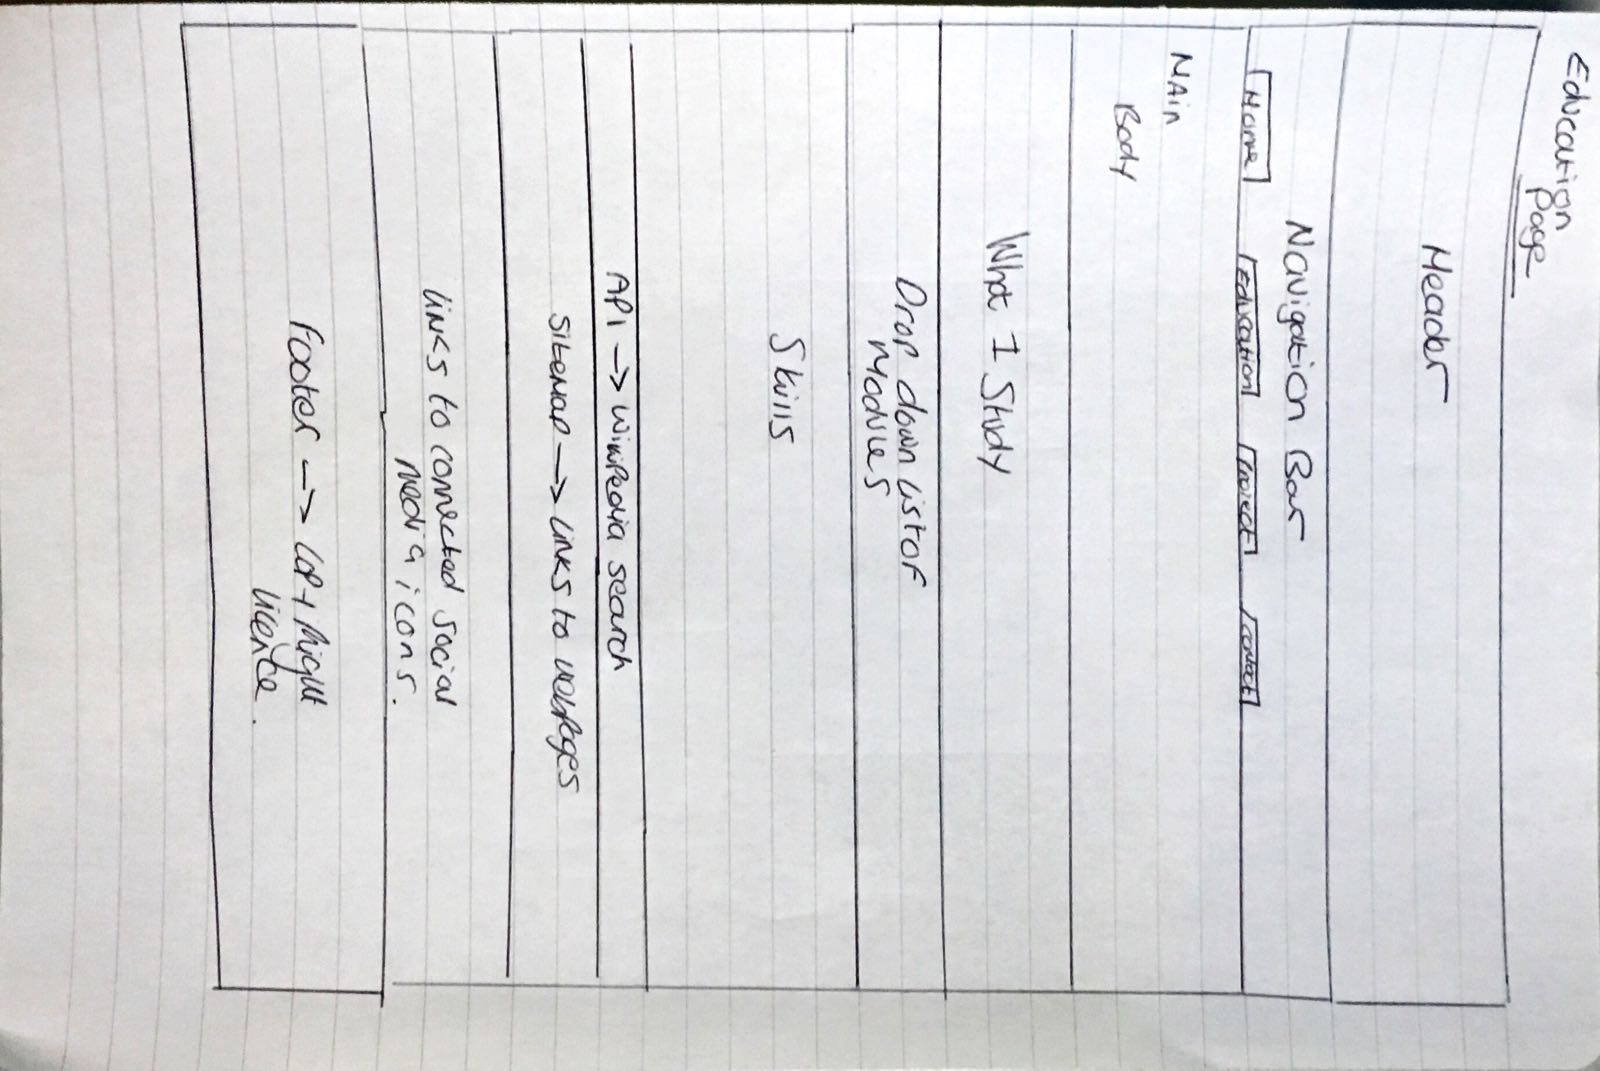 Education
Page
Header
Navigation Bar
Home
Education
Project
contact
Main
Body
What I Study
Drop down list of
Modules
Skills
API -> Wikipedia search
sitemap -> Links to webpages
links to connected social
media icons.
Footer -> Copyright
licence.